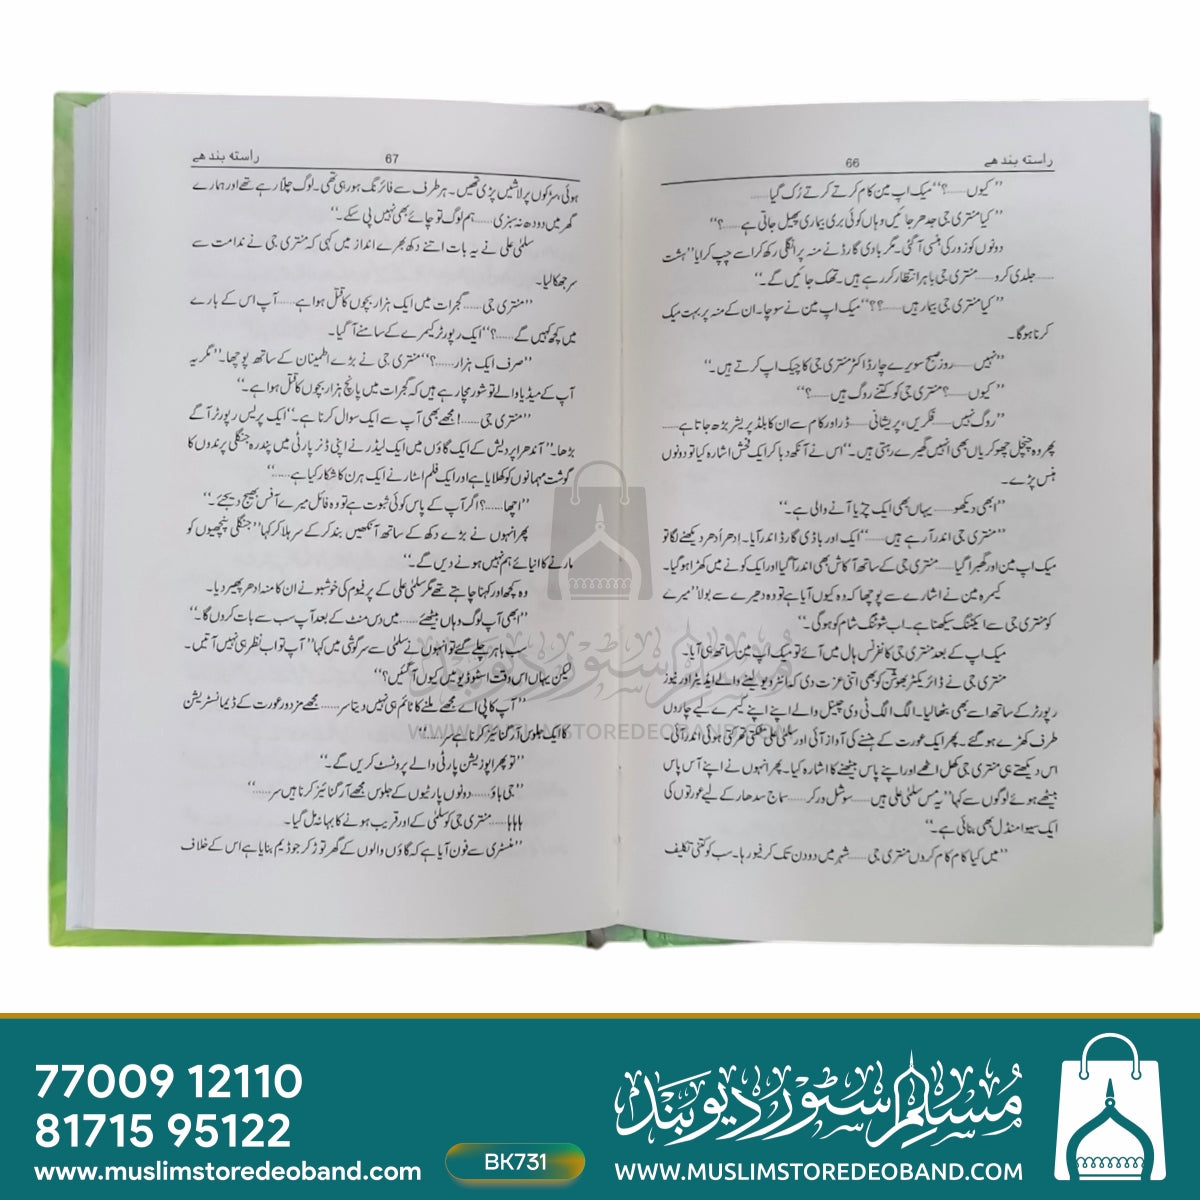 راستہ بند ھے
66
’’کیوں......؟‘‘ میک اپ مین کام کرتے کرتے رُک گیا......
’’کیا منتری جی جدھر جائیں وہاں کوئی بری بیماری پھیل جاتی ہے......؟‘‘
دونوں کو زور کی ہنسی آ گئی۔ مگر باڈی گارڈ نے منہ پر انگلی رکھ کر اسے چپ کرایا ’’ہشت
......جلدی کرو......منتری جی باہر انتظار کر رہے ہیں۔ تھک جائیں گے۔‘‘
’’کیا منتری جی بیمار ہیں......؟؟‘‘ میک اپ مین نے سوچا۔ ان کے منہ پر بہت میک
کرنا ہوگا۔
’’نہیں......روز صبح سویرے چار ڈاکٹر منتری جی کا چیک اپ کرتے ہیں۔‘‘
’’کیوں......؟ منتری جی کو کتنے روگ ہیں......؟‘‘
’’روگ نہیں......فکریں، پریشانی......ڈر اور کام سے ان کا بلڈ پریشر بڑھ جاتا ہے......
پھر وہ چنچل چھوکریاں بھی انہیں گھیرے رہتی ہیں۔‘‘ اس نے آنکھ دبا کر ایک فحش اشارہ کیا تو دونوں
ہنس پڑے۔
’’ابھی دیکھو......یہاں بھی ایک چڑیا آنے والی ہے۔‘‘
’’منتری جی اندر آ رہے ہیں......‘‘ ایک اور باڈی گارڈ اندر آیا۔ اِدھر اُدھر دیکھنے لگا تو
میک اپ مین اور گھبرا گیا......منتری جی کے ساتھ آکاش بھی اندر آ گیا اور ایک کونے میں کھڑا ہو گیا۔
کیمرہ مین نے اشارے سے پوچھا کہ وہ کیوں آیا ہے تو وہ دھیرے سے بولا ’’میرے
کو منتری جی سے ایکٹنگ سیکھنا ہے۔ اب شوٹنگ شام کو ہوگی۔‘‘
میک اپ کے بعد منتری جی کانفرنس ہال میں آئے تو میک اپ مین ساتھ ہی آیا۔
منتری جی نے ڈائریکٹر بھوشن کو بھی اتنی عزت دی کہ انٹرویو لینے والے ایڈیٹر اور نیوز
رپورٹر کے ساتھ اسے بھی بٹھا لیا۔ الگ الگ ٹی وی چینل والے اپنے اپنے کیمرے لیے چاروں
طرف کھڑے ہو گئے۔ پھر ایک عورت کے ہنسنے کی آواز آئی اور سلمیٰ علی مٹکتی تھرکتی ہوئی اندر آئی۔
اس دیکھتے ہی منتری جی کھل اٹھے اور اپنے پاس بیٹھنے کا اشارہ کیا۔ پھر انہوں نے اپنے آس پاس
بیٹھے ہوئے لوگوں سے کہا ’’یہ مس سلمیٰ علی ہیں......سوشل ورکر......سماج سدھار کے لیے عورتوں کی
ایک سیوا منڈل بھی بنائی ہے۔‘‘
’’میں کیا کام کام کروں منتری جی......شہر میں دو دن تک کرفیو رہا۔ سب کو کتنی تکلیف
راستہ بند ھے
67
ہوئی، سڑکوں پر لاشیں پڑی تھیں۔ ہر طرف سے فائرنگ ہو رہی تھی۔ لوگ جلا رہے تھے اور ہمارے
گھر میں دودھ نہ سبزی......ہم لوگ تو چائے بھی نہیں پی سکے۔‘‘
سلمیٰ علی نے یہ بات اتنے دکھ بھرے انداز میں کہی کہ منتری جی نے ندامت سے
سر جھکا لیا۔
’’منتری جی......گجرات میں ایک ہزار بچوں کا قتل ہوا ہے......آپ اس کے بارے
میں کچھ کہیں گے......؟‘‘ ایک رپورٹر کیمرے کے سامنے آ گیا۔
’’صرف ایک ہزار......؟‘‘ منتری جی نے بڑے اطمینان کے ساتھ پوچھا۔ ’’مگر یہ
آپ کے میڈیا والے تو شور مچا رہے ہیں کہ گجرات میں پانچ ہزار بچوں کا قتل ہوا ہے۔‘‘
’’منتری جی......! مجھے بھی آپ سے ایک سوال کرنا ہے۔‘‘ ایک پریس رپورٹر آگے
بڑھا۔ ’’آندھرا پردیش کے ایک گاؤں میں ایک لیڈر نے اپنی ڈنر پارٹی میں پندرہ جنگلی پرندوں کا
گوشت مہمانوں کو کھلایا ہے اور ایک فلم اسٹار نے ایک ہرن کا شکار کیا ہے......‘‘
’’اچھا......؟ اگر آپ کے پاس کوئی ثبوت ہے تو وہ فائل میرے آفس بھیج دیجئے۔‘‘
پھر انہوں نے بڑے دکھ کے ساتھ آنکھیں بند کر کے سر ہلا کر کہا ’’جنگلی پنچھیوں کو
مارنے کا انیائے ہم نہیں ہونے دیں گے۔‘‘
وہ کچھ اور کہنا چاہتے تھے مگر سلمیٰ علی کے پرفیوم کی خوشبو نے ان کا منہ ادھر پھیر دیا۔
’’ابھی آپ لوگ وہاں بیٹھئے......میں دس منٹ کے بعد آپ سب سے بات کروں گا۔‘‘
سب باہر چلے گئے تو انہوں نے سلمیٰ سے سرگوشی میں کہا ’’آپ تو اب نظر ہی نہیں آتیں۔
لیکن یہاں اس وقت اسٹوڈیو میں کیوں آ گئیں؟‘‘
’’آپ کا پی اے مجھے ملنے کا ٹائم ہی نہیں دیتا سر......مجھے مزدور عورت کے ڈیمانسٹریشن
کا ایک جلوس آرگنائیز کرنا ہے سر......‘‘
’’تو پھر اپوزیشن پارٹی والے پروٹسٹ کریں گے۔‘‘
’’جی ہاؤ......دونوں پارٹیوں کے جلوس مجھے آرگنائیز کرنا ہیں سر......‘‘
ہاہاہا......منتری جی کو سلمیٰ کے اور قریب ہونے کا بہانہ مل گیا۔
’’منسٹری سے فون آیا ہے کہ گاؤں والوں کے گھر توڑ کر جو ڈیم بنایا ہے اس کے خلاف
مسلم سٹور دیوبند
WWW.MUSLIMSTOREDEOBAND.COM
77009 12110
81715 95122
www.muslimstoredeoband.com
BK731
مسلم سٹور دیوبند
WWW.MUSLIMSTOREDEOBAND.COM